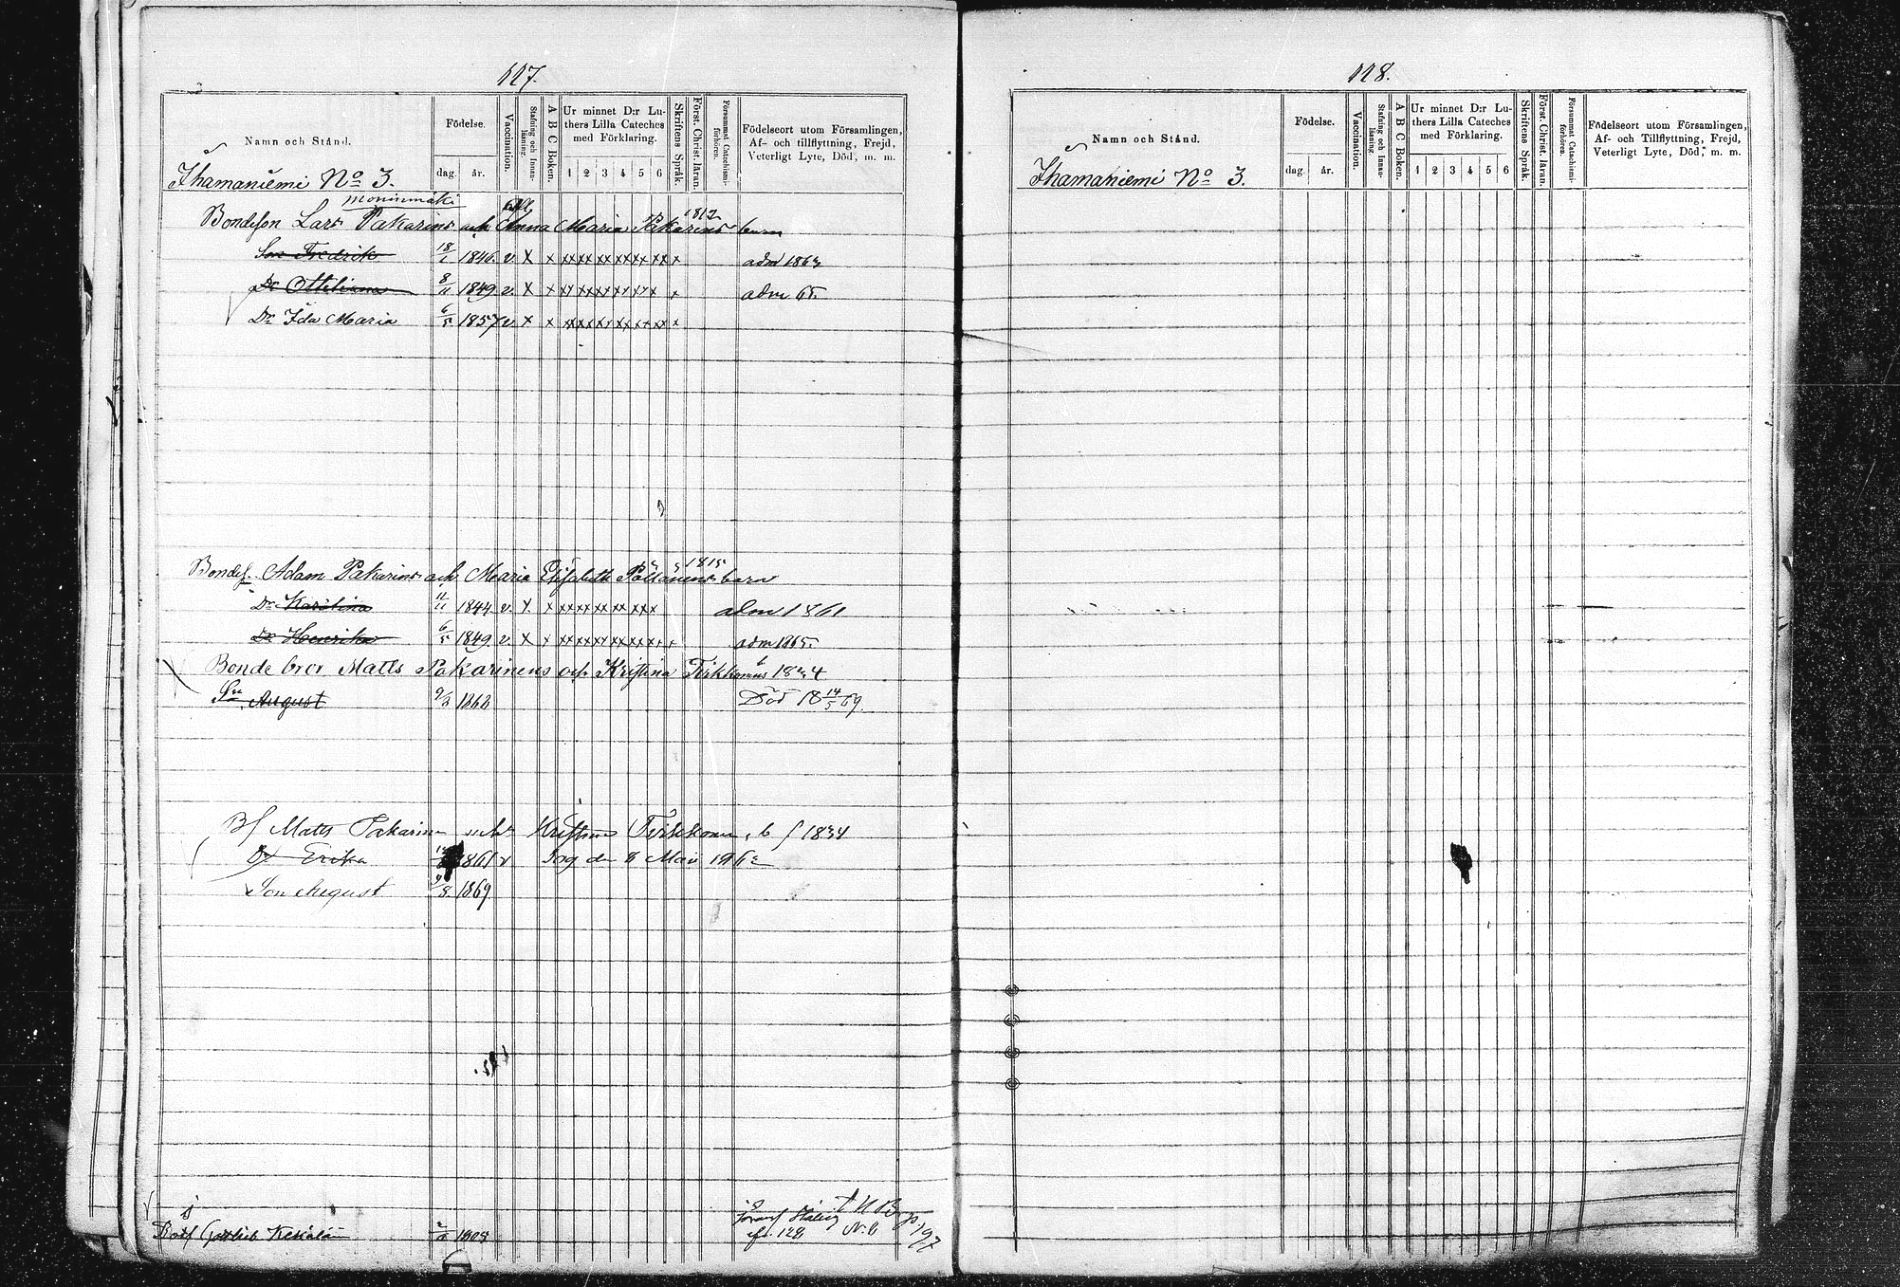 117.
Namn och Stånd.
Födelse.
dag.
år.
Vaccination.
Stafning och Innan-läsning.
A B C Boken.
Ur minnet D:r Lu-
thers Lilla Cateches
med Förklaring.
1 2 3 4 5 6
Skriftens Språk.
Först. Christ. läran.
Försummat Catechismi-
förhören.
Födelseort utom Församlingen,
Af- och tillflyttning, Frejd,
Veterligt Lyte, Död, m. m.
Ihamaniemi No 3.
Moninmäki
Bondeson Lars Pakarins och Anna Maria Pakarins 1812 barn
Son Fredrik 18/1 1846. v. x x xx xx xx xx xx xx x adm 1863
Dr Ottiliana 8/11 1849 v. x x adm 65.
Dr Ida Maria 6/5 1857 v. x x
Bondes. Adam Pakarins och Maria Elisabeth Pöllänens 1815 barn
Dr Karolina 11/11 1844 v. x. x adm 1861
Dr Henrika 6/5 1849. v. x x adm 1865.
Bonde bror Matts Pakarinens och Kristina Tirkkonens b 1834
Sn August 9/8 1868 Död 18 14/5 69.
Bs Matts Pakarinen och Kristina Tirkkonen, b f 1834
Dr Erika 1861 v Dog den 8 Maii 1862
Son August 9/8. 1869
Gottlieb
128 N. 6 197
118.
Namn och Stånd.
Födelse.
dag.
år.
Vaccination.
Stafning och Innan-
A B C Boken.
Ur minnet D:r Lu-
thers Lilla Cateches
med Förklaring.
1 2 3 4 5 6
Skriftens Språk.
Först. Christ. läran.
Försummat Catechismi-
förhören.
Födelseort utom Församlingen,
Af- och Tillflyttning, Frejd,
Veterligt Lyte, Död, m. m.
Ihamaniemi No 3.